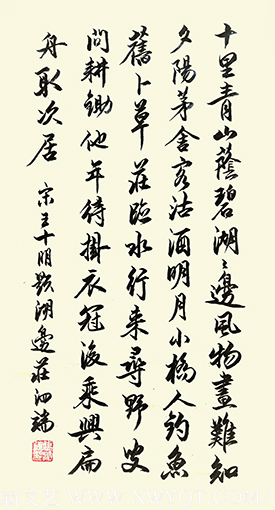 十里青山蔭碧湖〻邊風物畫難如
夕陽茅舍客沽酒明月小橋人釣魚
舊卜草莊臨水竹来尋野叟
問耕鋤他年待掛衣冠後乘興扁
舟取次居 宋王十朋題湖邊莊 泗端